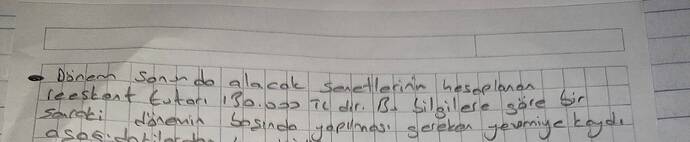 Dönem sonunda alacak senetlerinin hesaplanan
reeskont tutarı 130.000 TL dir. Bu bilgilere göre bir
sonraki dönemin başında yapılması gereken yevmiye kaydı
aşağıdakilerden